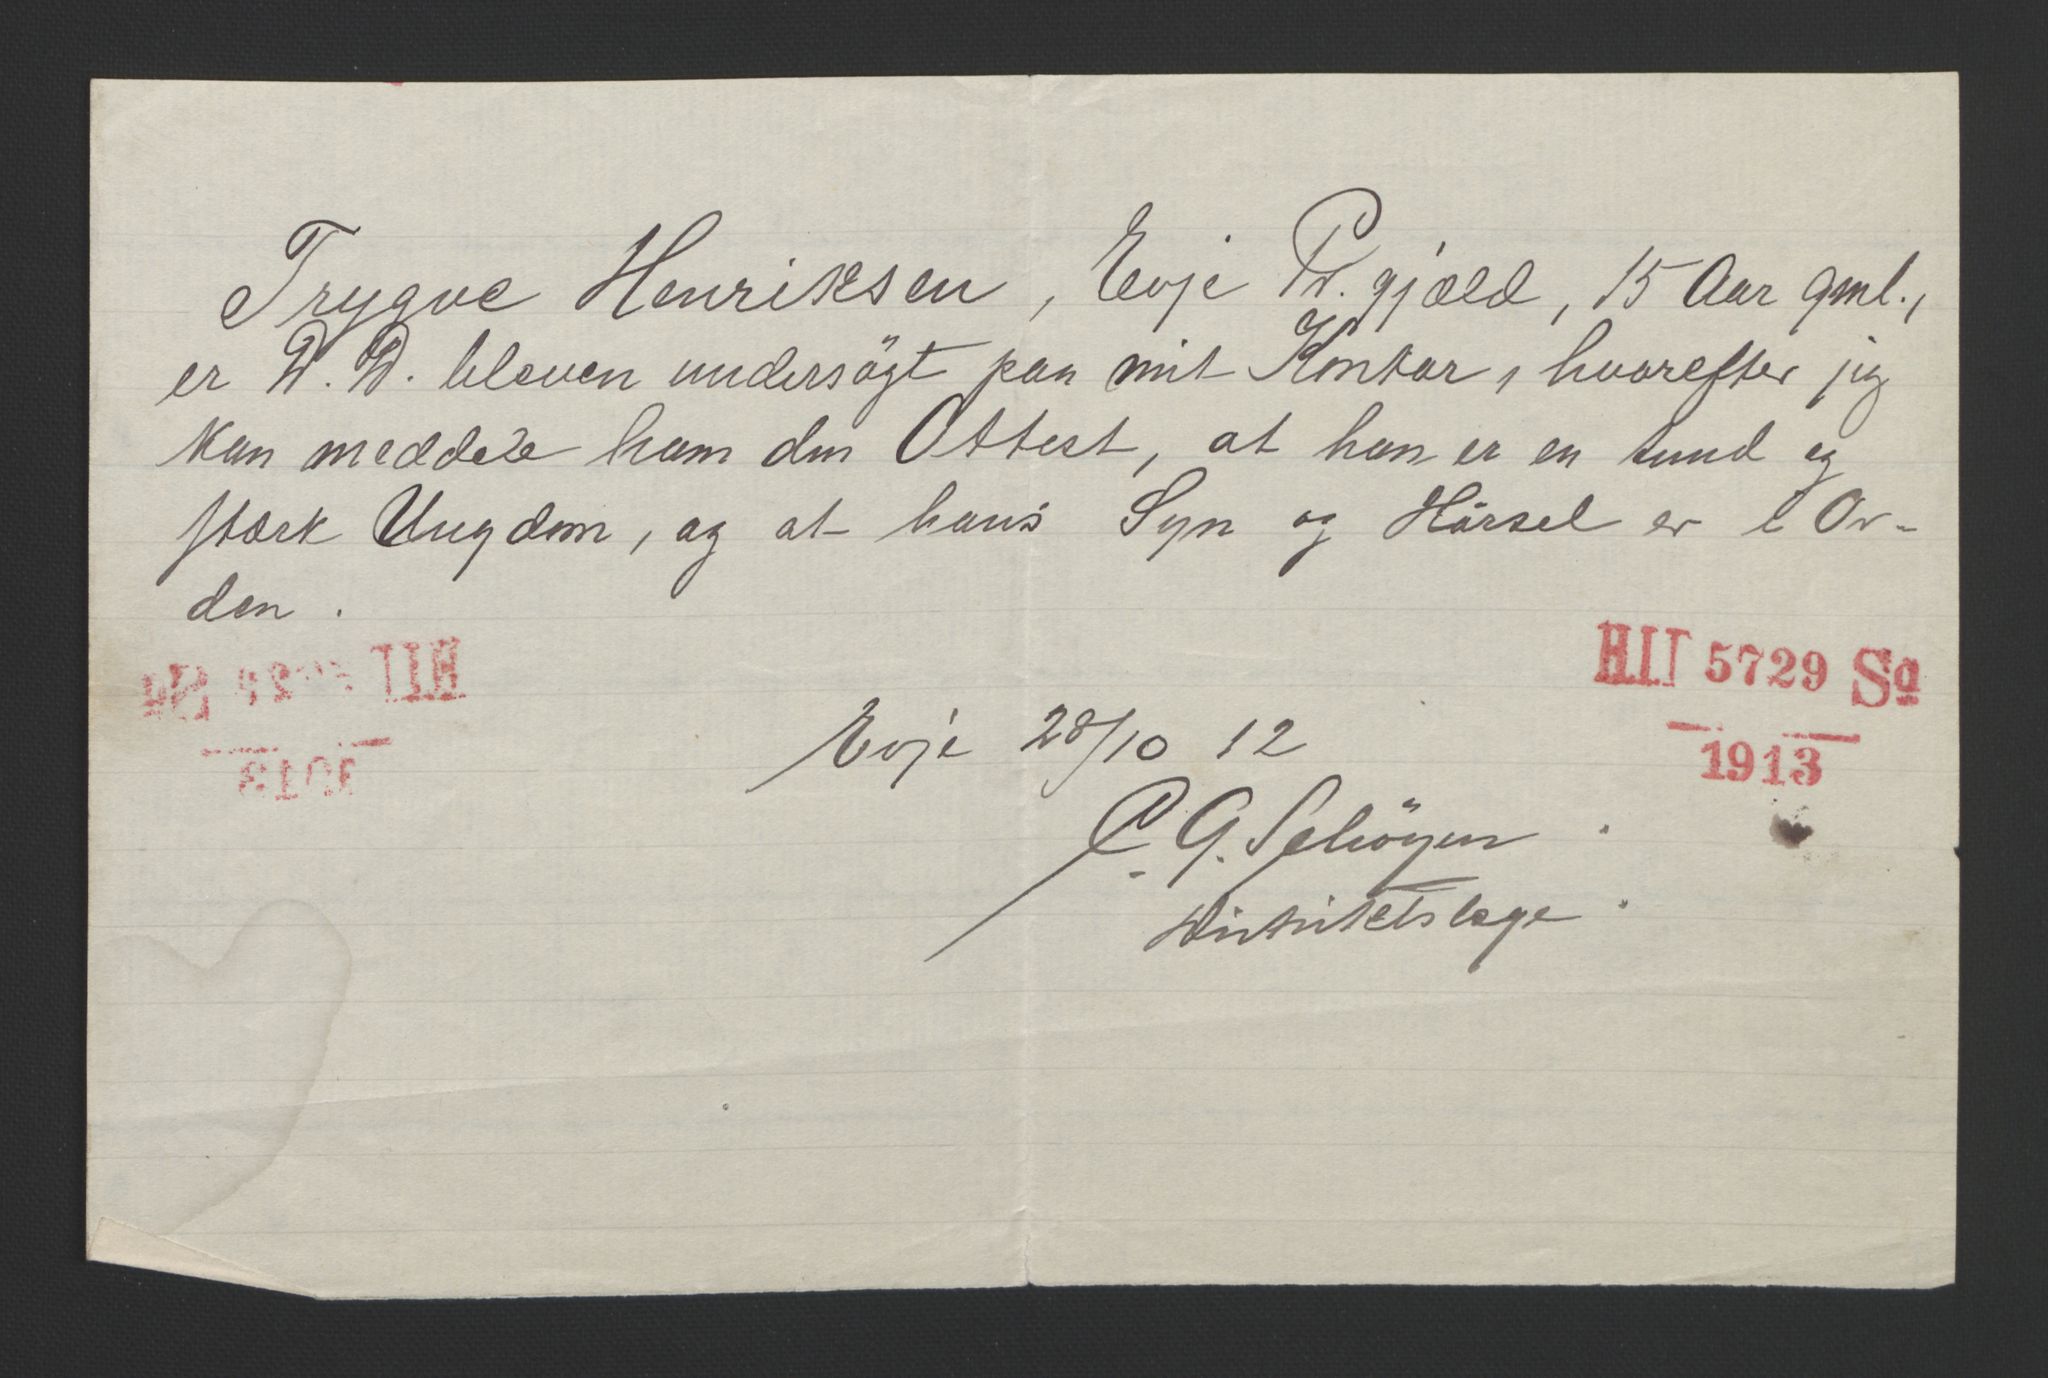 Trygve Henriksen, Evje Pr.gjæld, 15 Aar gml.,
er D. D. bleven undersögt paa mit Kontor, hvorefter jeg
kan meddele ham den Attest, at han er en sund og
stærk Ungdom, og at hans Syn og Hörsel er i Or-
den.
HII 5729 Sa
1913
Evje 28/10 12
P. G. Schöyen
Distriktslæge.